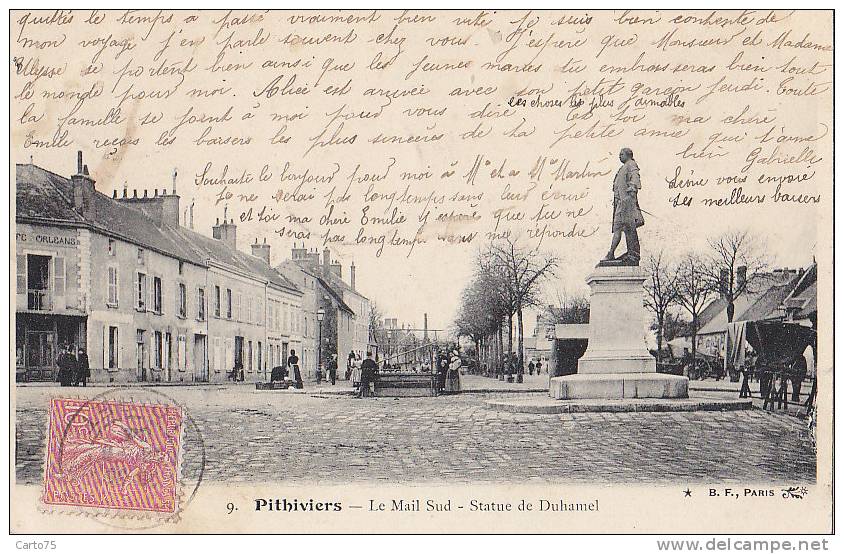 quittés le temps a passé vraiment bien vite je suis bien contente de
mon voyage j'en parle souvent chez vous. J'espère que Monsieur et Madame
Ulysse se portent bien ainsi que les jeunes mariés tu embrasseras bien tout
le monde pour moi. Alice est arrivée avec son petit garçon jeudi. Toute
la famille se joint à moi pour vous dire les choses les plus aimables et toi ma chère
Emilie reçois les baisers les plus sincères de ta petite amie qui t'aime
bien Gabrielle
Souhaite le bonjour pour moi à Mr et à Me Martin
je ne serai pas longtemps sans leur écrire
et toi ma chère Emilie j'espère que tu ne
seras pas longtemps sans me répondre
vous envoie
ses meilleurs baisers
ORLEANS
9. Pithiviers — Le Mail Sud - Statue de Duhamel
B. F., PARIS
Cartor75
http://www.delcampe.net